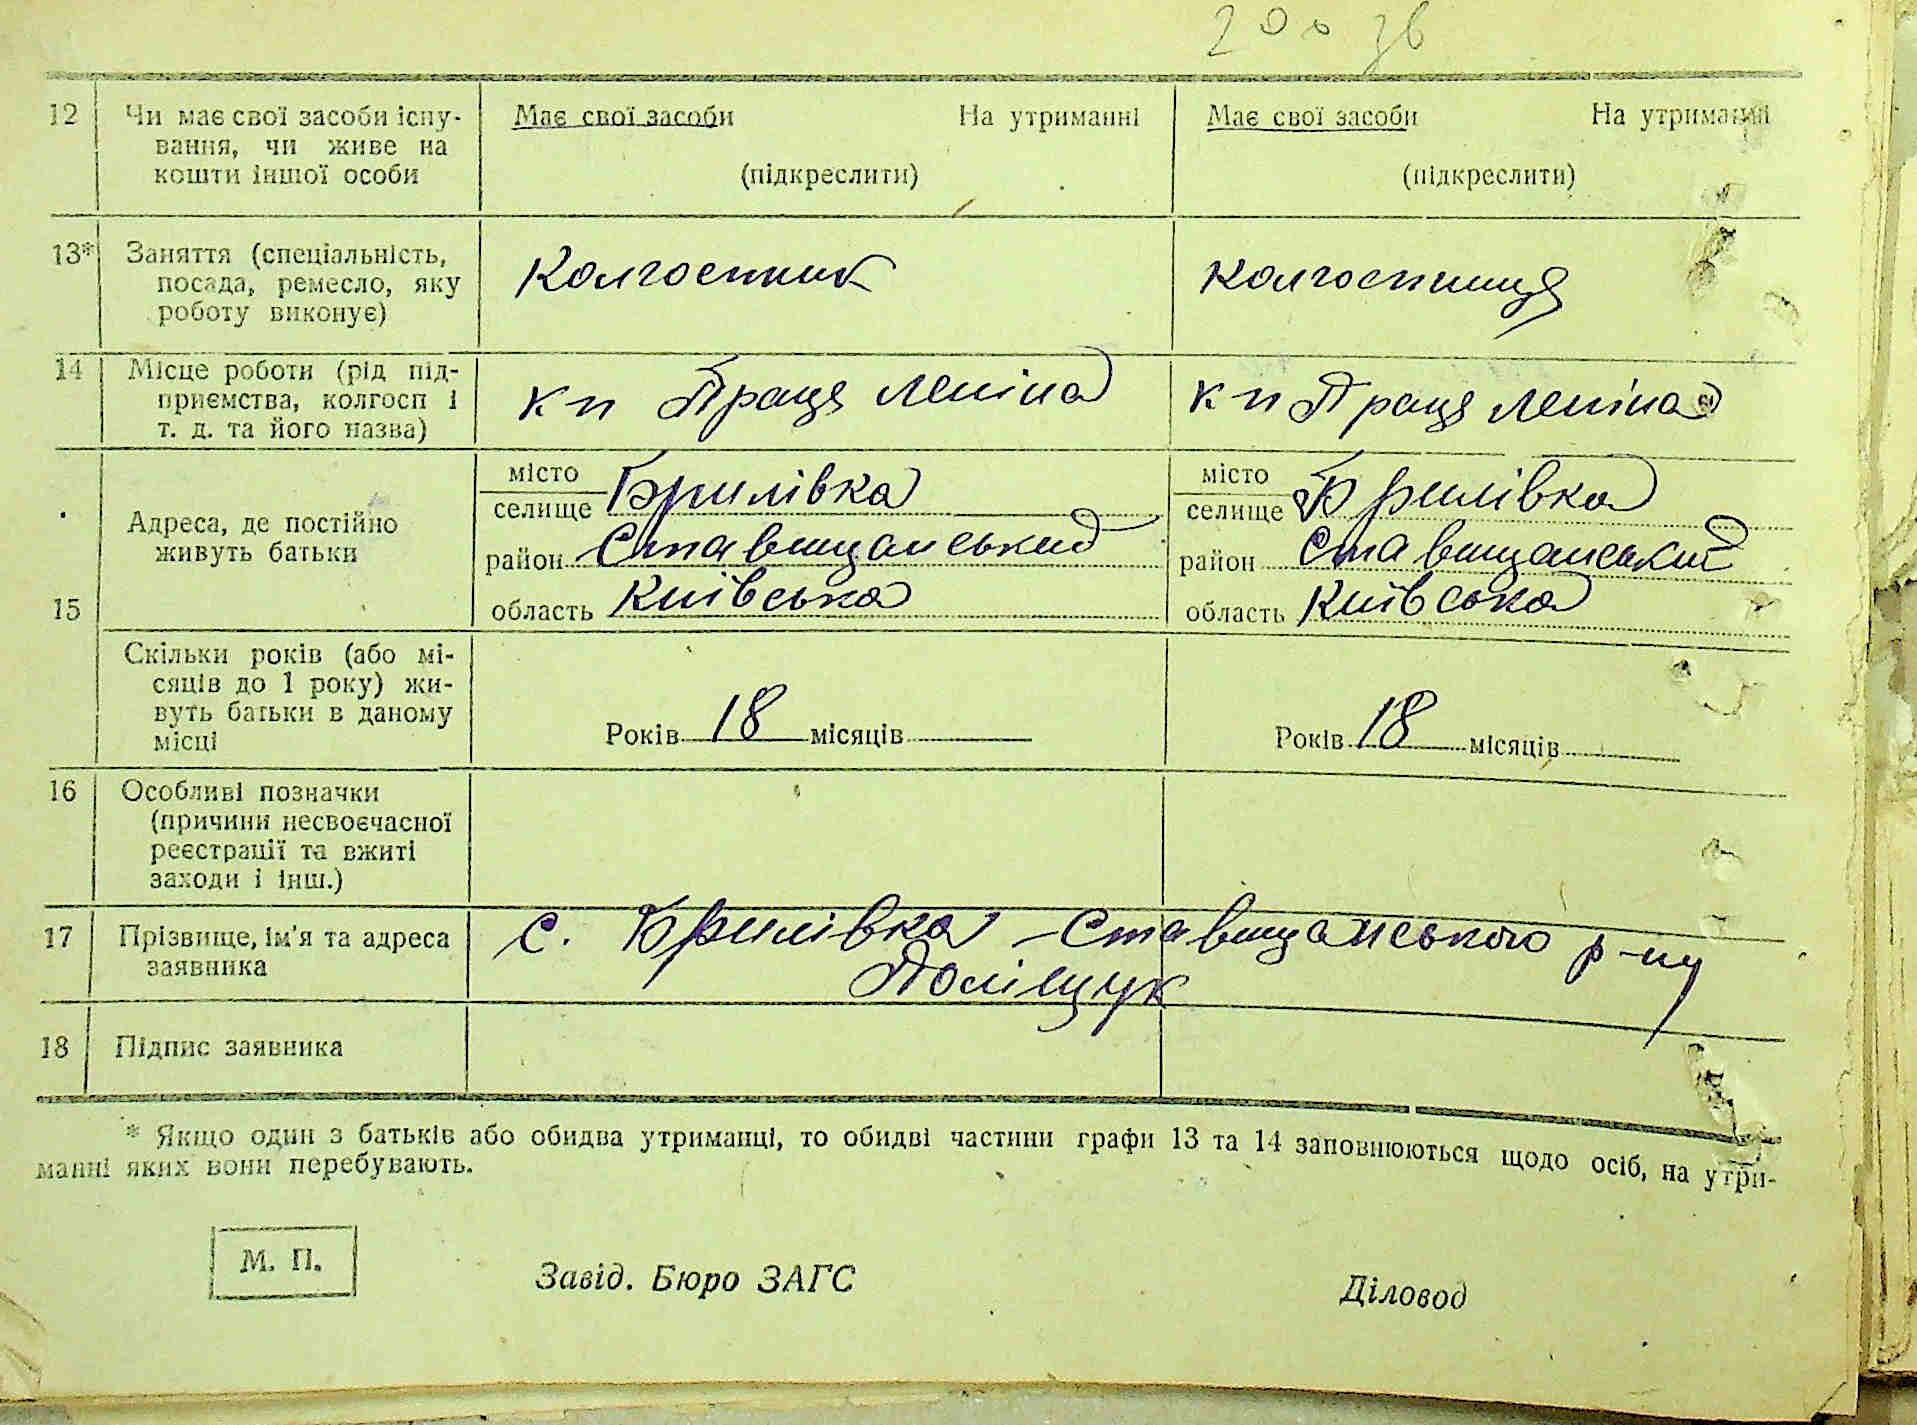 200 зв
12 Чи має свої засоби існу- Має свої засоби На утриманні Має свої засоби На утриманні
вання, чи живе на
кошти іншої особи (підкреслити) (підкреслити)
13* Заняття (спеціальність, Колгоспник колгоспниця
посада, ремесло, яку
роботу виконує)
14 Місце роботи (рід під-
приємства, колгосп і кп Праця Леніна кп Праця Леніна
т. д. та його назва)
місто місто
селище Брилівка селище Брилівка
Адреса, де постійно
живуть батьки район Ставищанський район Ставищанський
15 область Київська область Київська
Скільки років (або мі-
сяців до 1 року) жи-
вуть батьки в даному Років 18 місяців Років 18 місяців
місці
16 Особливі позначки
(причини несвоєчасної
реєстрації та вжиті
заходи і інш.)
17 Прізвище, ім'я та адреса с. Брилівка - Ставищанського р-ну
заявника Поліщук
18 Підпис заявника
* Якщо один з батьків або обидва утриманці, то обидві частини графи 13 та 14 заповнюються щодо осіб, на утри-
манні яких вони перебувають.
М. П. Завід. Бюро ЗАГС Діловод